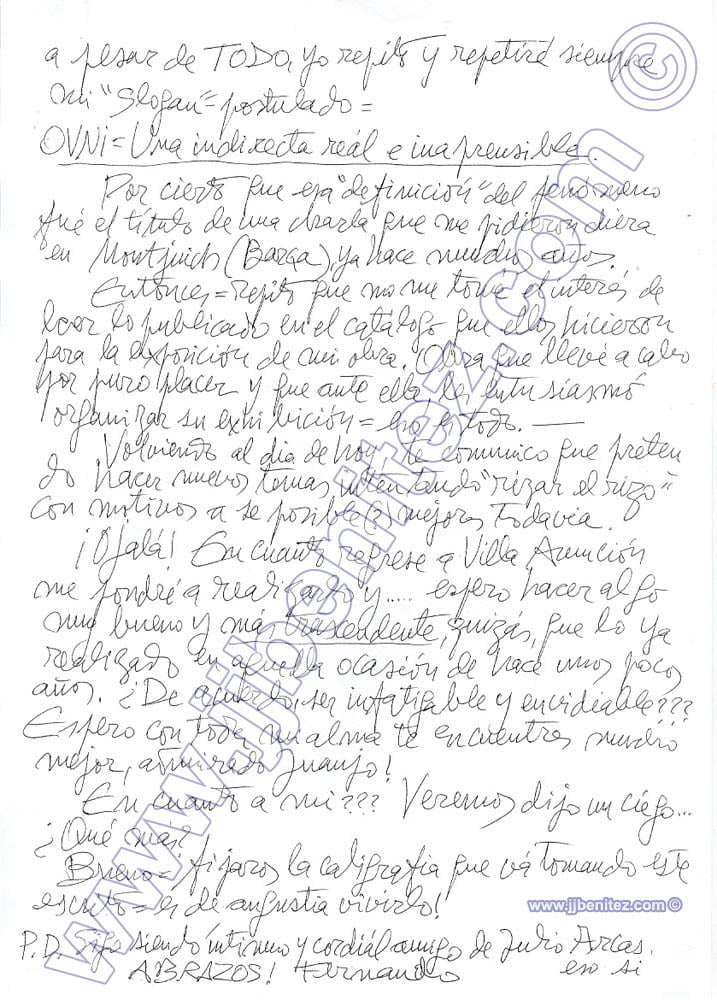 a pesar de TODO, yo repito y repetiré siempre
mi "Slogan" = postulado =
OVNI = Una indirecta reál e inaprensible.
Por cierto que esa "definición" del fenómeno
fué el título de una charla que me pidieron diera
en Montjuich (Barça), ya hace muchos años.
Entonces = repito que no me tomé el interés de
leer lo publicado en el catálogo que ellos hicieron
para la exposición de mi obra. Obra que llevé a cabo
por puro placer y que ante ella, les entusiasmó
organizar su exhibición = eso es todo. —
Volviendo al dia de hoy, te comunico que preten
do hacer nuevos temas intentando "rizar el rizo"
con motivos a se posible(s) mejores todavia.
¡Ojalá! En cuanto regrese a Villa Asunción
me pondré a realizarlo y ..... espero hacer algo
muy bueno y más trascendente, quizás, que lo ya
realizado en aquella ocasión de hace unos pocos
años. ¿De acuerdo, ser infatigable y envidiable???
Espero con toda mi alma te encuentres mucho
mejor, admirado Juanjo!
En cuanto a mi??? Veremos dijo un ciego...
¿Qué más?
Bueno = fijaros la caligrafia que vá tomando este
escrito = es de angustia vivirlo!
P.D. Sigo siendo íntimo y cordiál amigo de Julio Arcas.
ABRAZOS! Fernando eso si
www.jjbenitez.com ©
www.jjbenitez.com ©